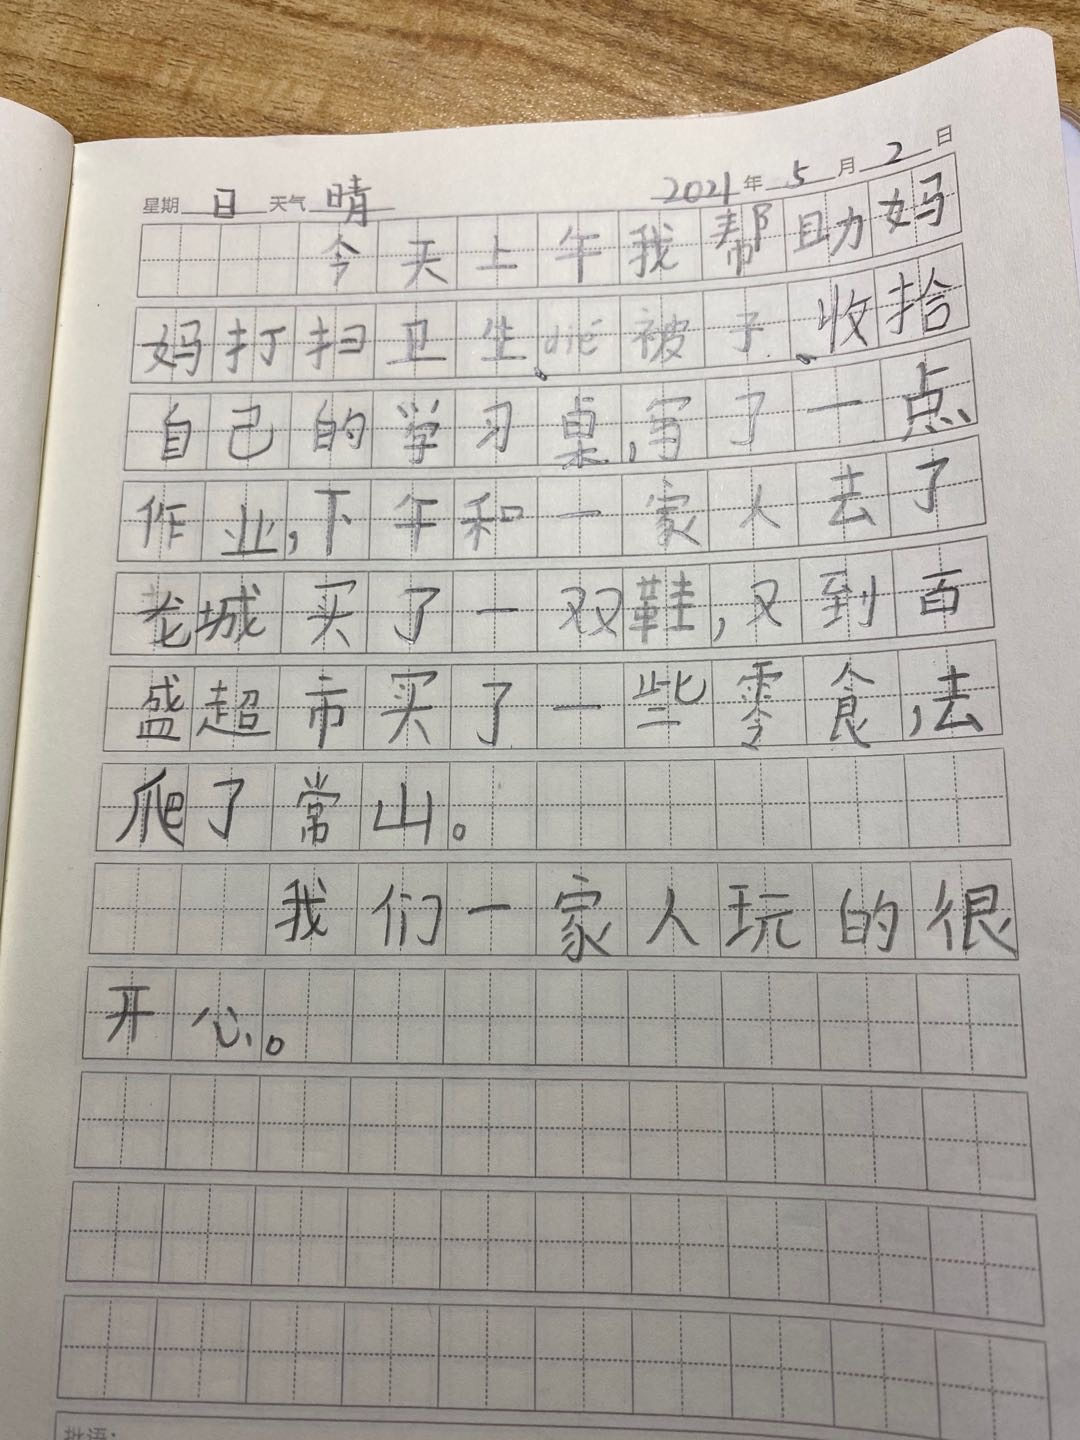 星期 日 天气 晴 2021 年 5 月 2 日
今天上午我帮助妈
妈打扫卫生、dié被子、收拾
自己的学习桌,写了一点
作业,下午和一家人去了
龙城买了一双鞋,又到百
盛超市买了一些零食,去
爬了常山。
我们一家人玩的很
开心。
批语: